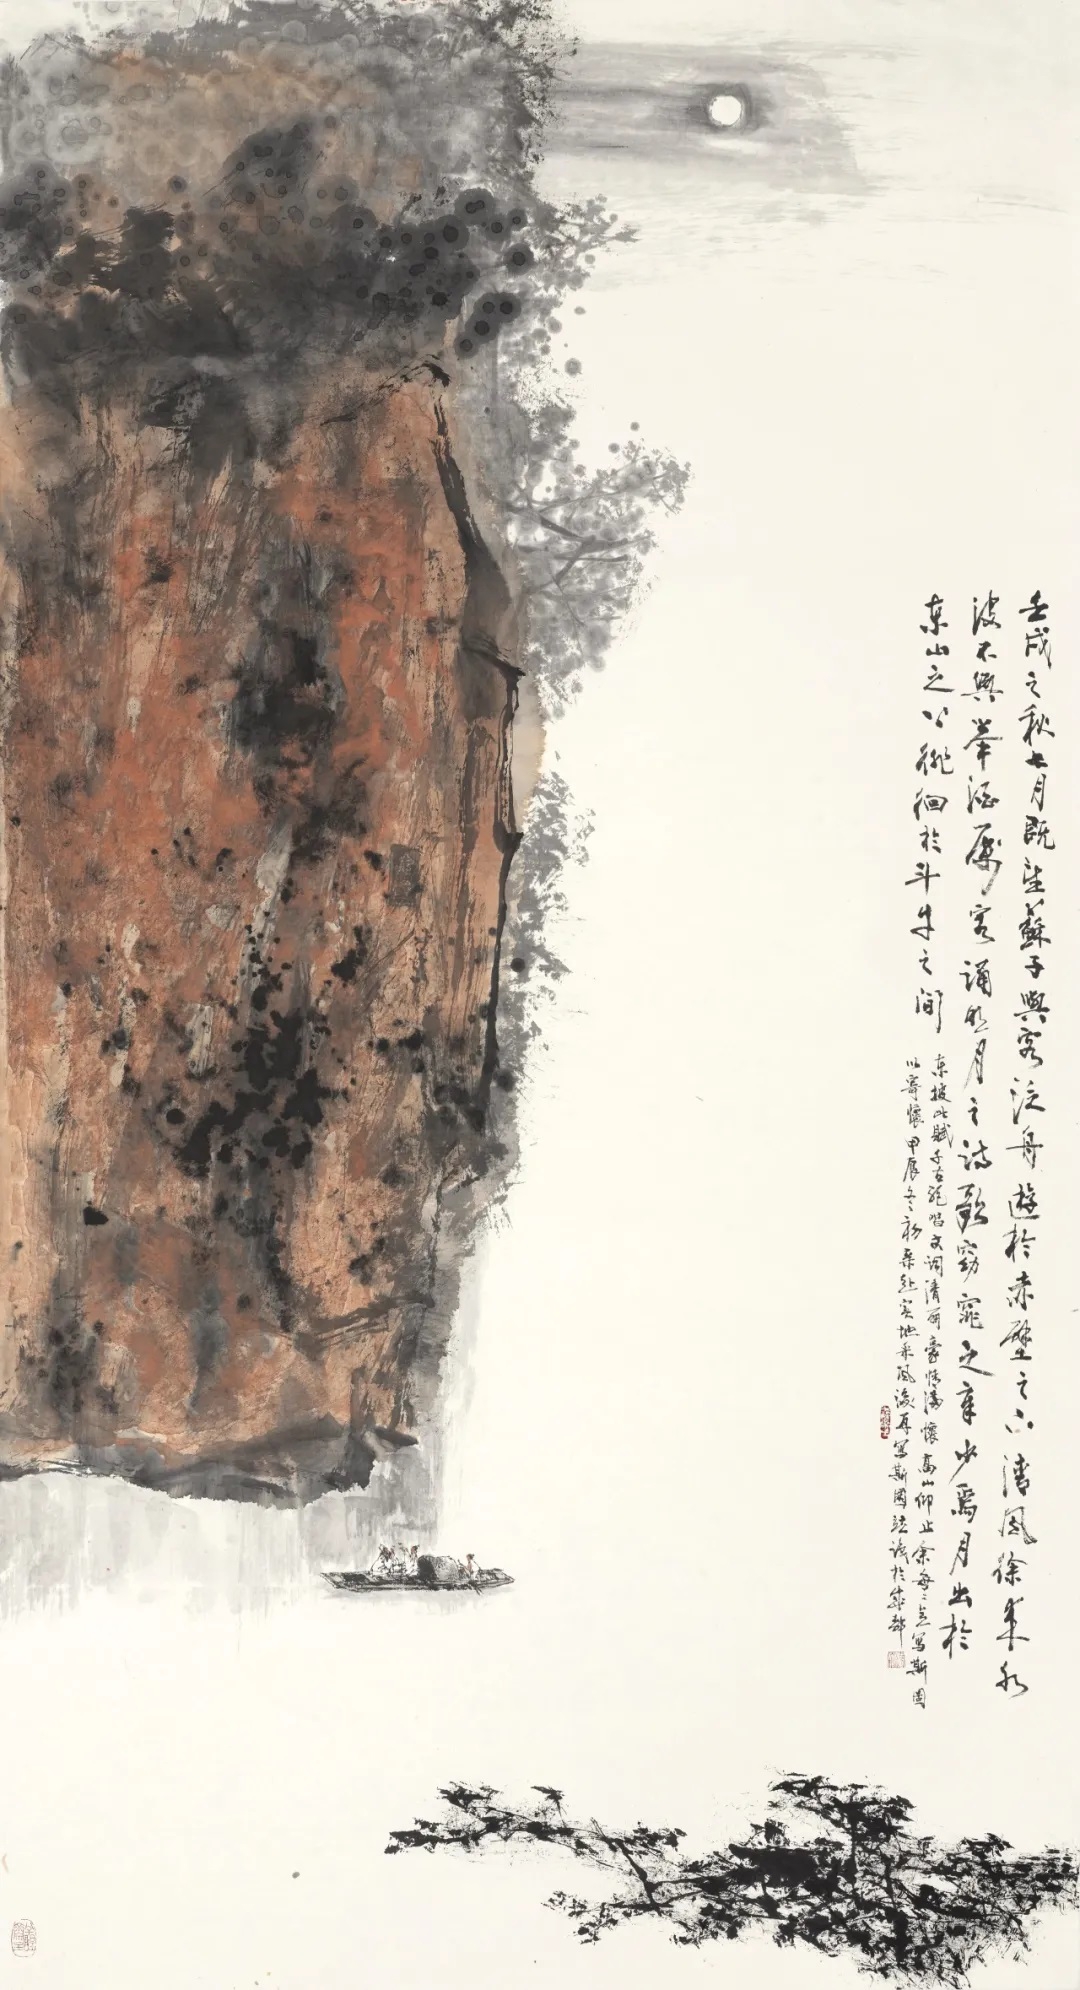 壬戌之秋七月既望蘇子與客泛舟遊於赤壁之下清風徐來水
波不興舉酒屬客誦明月之詩歌窈窕之章少焉月出於
東山之上徘徊於斗牛之間
東坡此賦千古絕唱文詞清丽豪情滿懷高山仰止余每每寫斯圖
以寄懷甲辰冬初赴实地采風後再写斯圖於成都